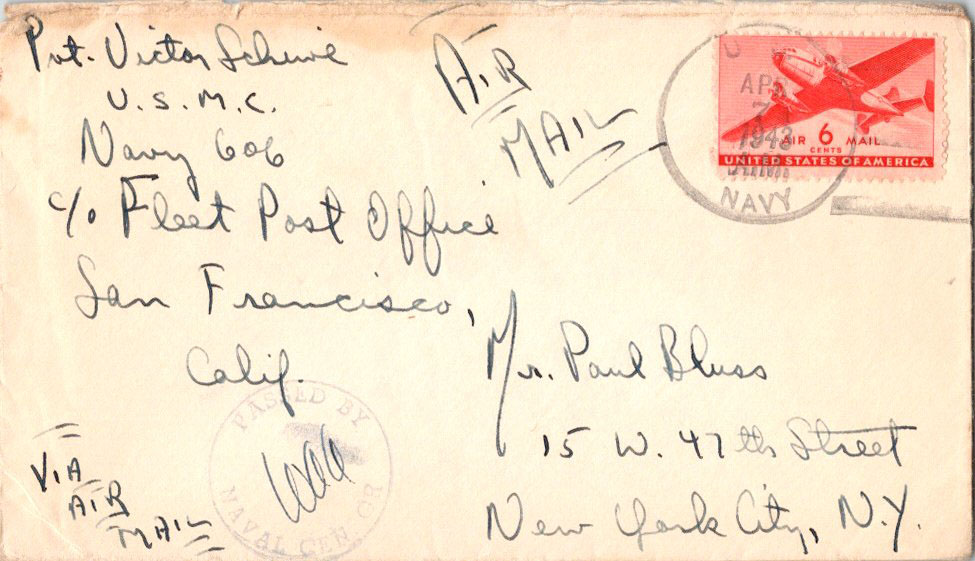 Pvt. Victor
U.S.M.C.
Navy 606
c/o Fleet Post Office
San Francisco,
Calif.
AIR
MAIL
APR
7
1943
NAVY
AIR 6 MAIL
CENTS
UNITED STATES OF AMERICA
Mr. Paul Bluss
15 W. 47th Street
New York City, N.Y.
VIA
AIR
MAIL
PASSED BY
NAVAL CENSOR